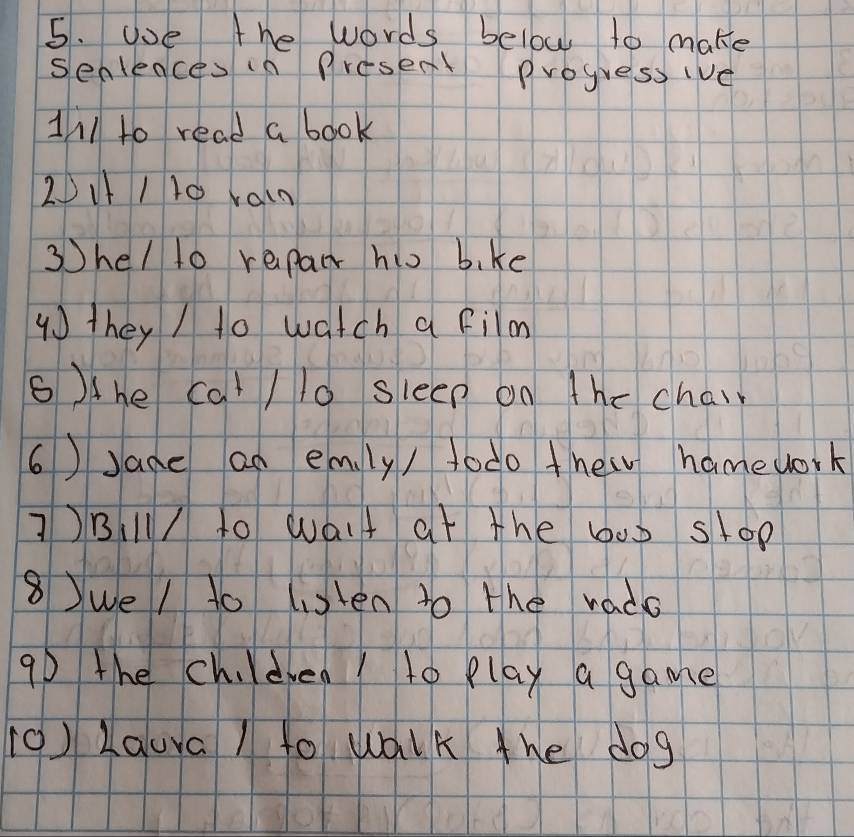 5. Use the words below to make
sentences in Present progressive
1)I/ to read a book
2) it / to rain
3) he / to repair his bike
4) they / to watch a film
5) the cat / to sleep on the chair
6) Jane an emily / todo their hamework
7) Bill / to wait at the bus stop
8) we / to listen to the rado
9) the children / to play a game
10) Laura / to walk the dog